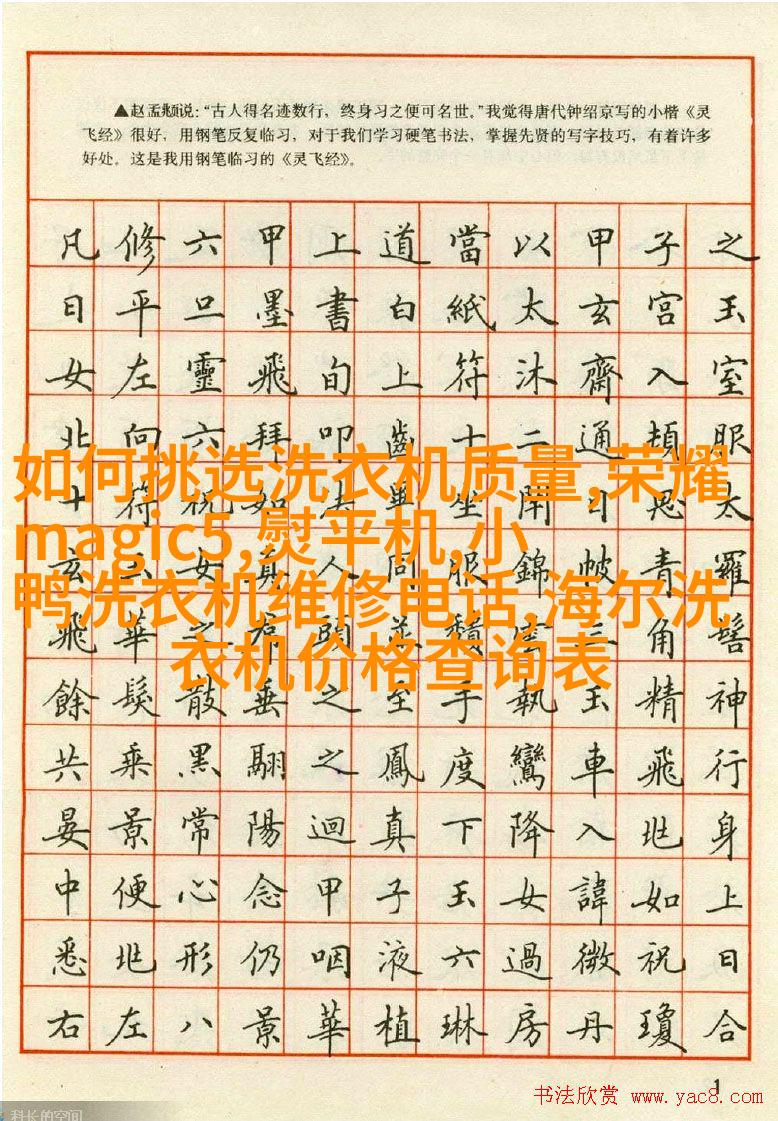 ▲赵孟頫说:“古人得名迹数行,终身习之便可名世。”我觉得唐代钟绍京写的小楷《灵
飞经》很好,用钢笔反复临习,对于我们学习硬笔书法,掌握先贤的写字技巧,有着许多
好处。这是我用钢笔临习的《灵飞经》。
凡修六甲上道當以甲子之
日平旦墨書白紙太玄宮玉
女左靈飛旬上符沐齋入室
北向六拜叩齒十二通頓服
十符祝如法畢坐閇目思太
玄玉女真人同服錦帔青羅
飛華之帬頭並頹雲三角髻
餘髮散垂之至手執玉精神
共乘黑翮之鳳度鸞車飛行
晏景常陽迴真下降入兆身
中便心念甲子玉女諱如上
悉兆形仍咽液六過微祝曰
右左八景華植琳房丹瓊合
如何挑选洗衣机质量,荣耀
magic5,熨平机,小
鸭洗衣机维修电话,海尔洗
衣机价格查询表
1
书法欣赏 www.yac8.com
科长的空间